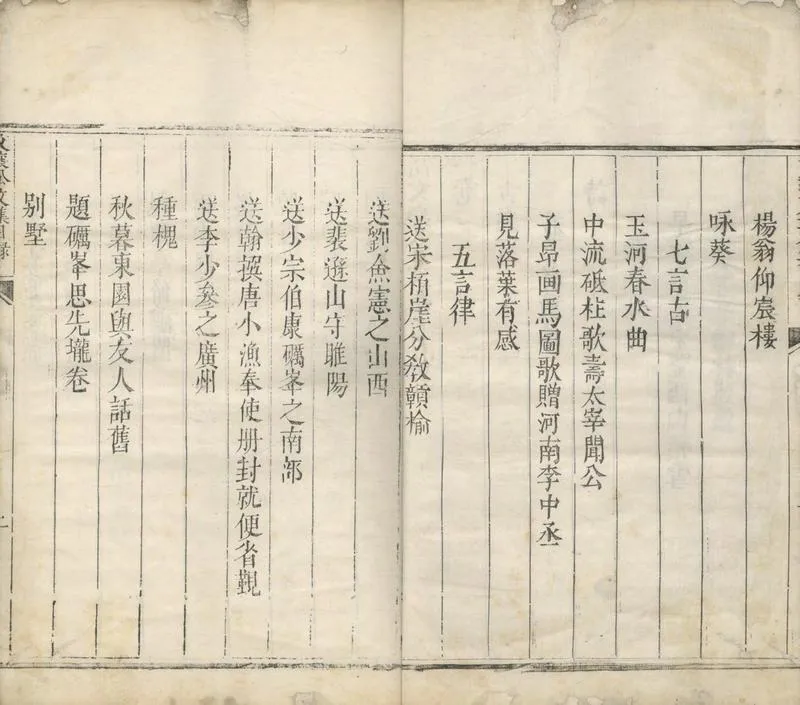 楊翁仰宸樓
咏葵
七言古
玉河春水曲
中流砥柱歌壽太宰聞公
子昂画馬圖歌贈河南李中丞
見落葉有感
五言律
送宋栢崖分教贛榆
送劉僉憲之山西
送裴遜山守睢陽
送少宗伯康礪峯之南部
送翰撰唐小漁奉使册封就便省覲
送李少參之廣州
種槐
秋暮東園與友人話舊
題礪峯思先壠卷
別墅
公文集目錄
二